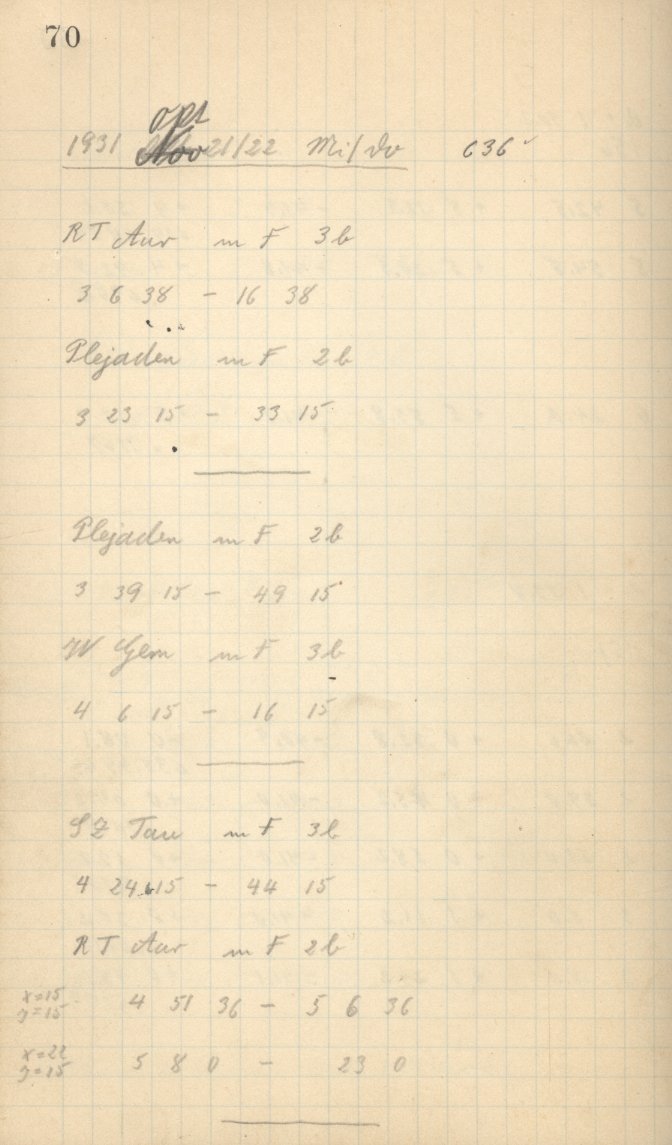 70
opt
1931 Nov 21/22 Mi/Do 636
RT Aur m F 3b
3 6 38 - 16 38
Plejaden m F 2b
3 23 15 - 33 15
Plejaden m F 2b
3 39 15 - 49 15
W Gem m F 3b
4 6 15 - 16 15
SZ Tau m F 3b
4 24 15 - 44 15
RT Aur m F 2b
x=15
y=15
4 51 36 - 5 6 36
x=22
y=15
5 8 0 - 23 0